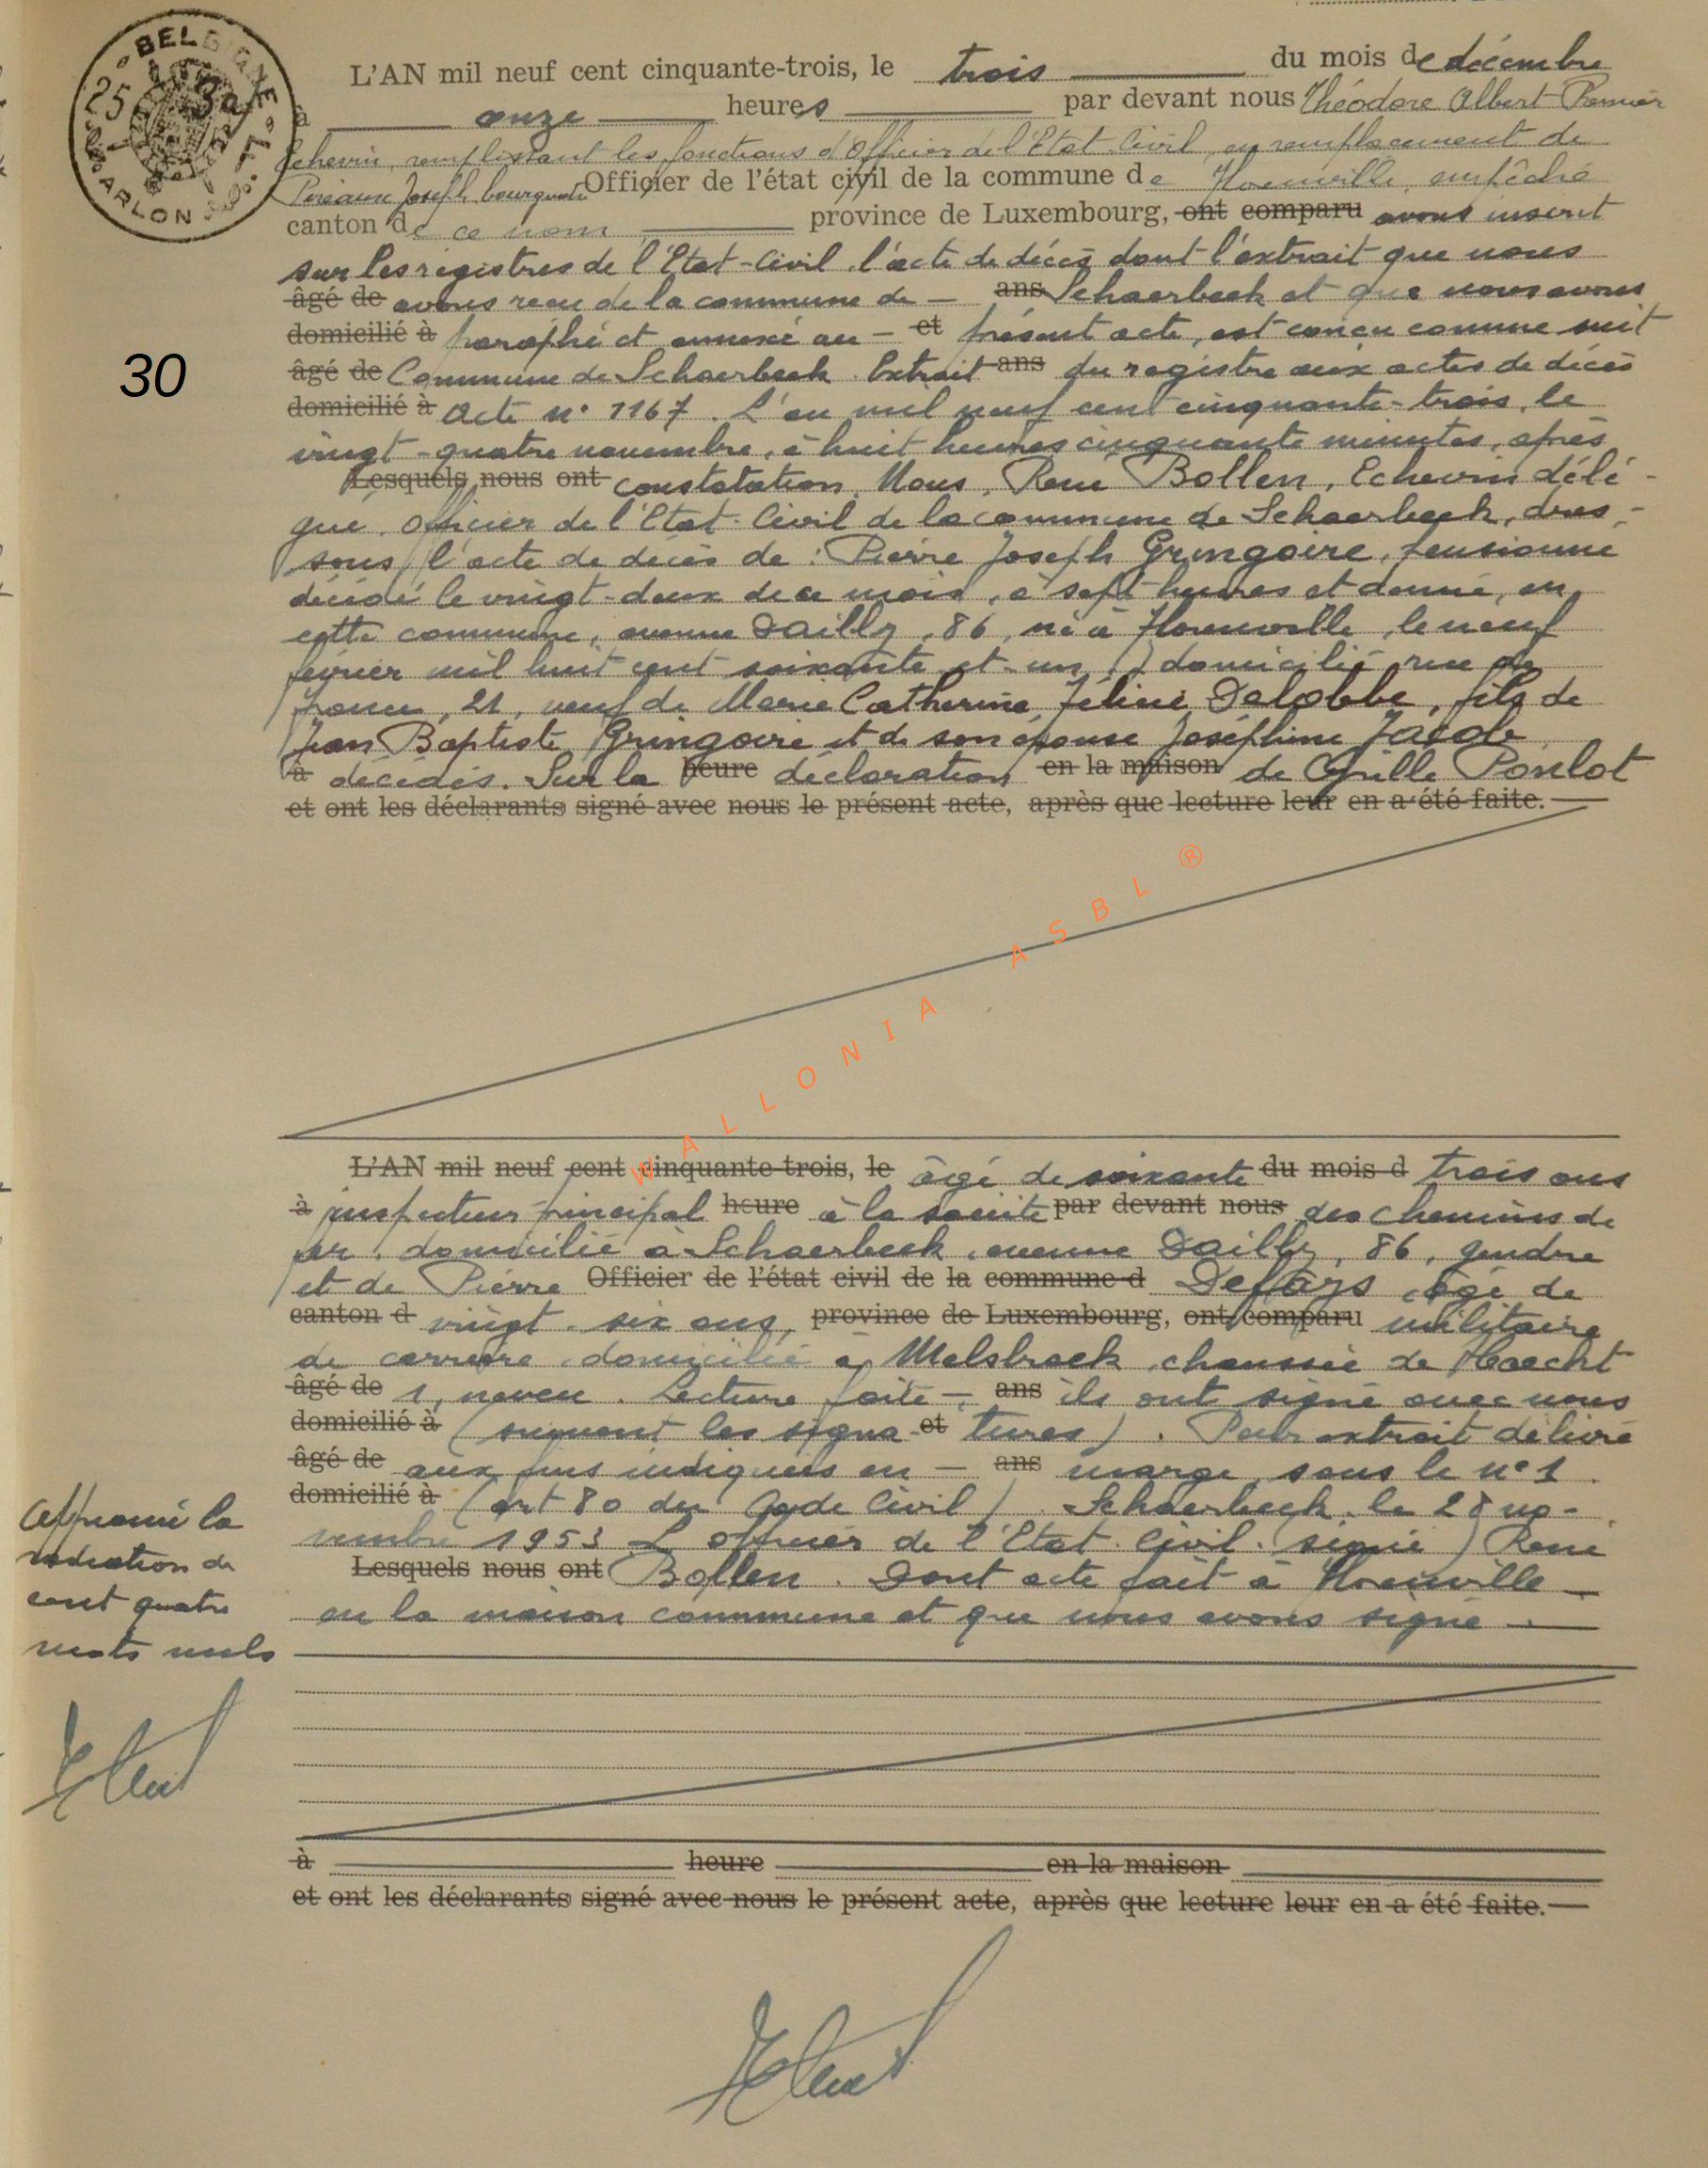 BELGIQUE
25
ARLON
L'AN mil neuf cent cinquante-trois, le trois du mois de décembre
à onze heures par devant nous Théodore Albert
Echevin, remplissant les fonctions d'Officier de l'Etat-Civil, en remplacement de
Joseph bourgmestre Officier de l'état civil de la commune de Florenville, empêché
canton de ce nom province de Luxembourg, ont comparu avons inscrit
sur les registres de l'Etat-Civil, l'acte de décès dont l'extrait que nous
âgé de avons reçu de la commune de — ans Schaerbeek et que nous avons
domicilié à paraphé et annexé au — et présent acte, est conçu comme suit
âgé de Commune de Schaerbeek. Extrait ans du registre aux actes de décès
domicilié à Acte n° 1167. L'an mil neuf cent cinquante-trois, le
vingt-quatre novembre, à huit heures cinquante minutes, après
Lesquels nous ont constatation, Nous, René Bollen, Echevin délé-
gué, Officier de l'Etat-Civil de la commune de Schaerbeek, dres-
sons l'acte de décès de : Pierre Joseph Gringoire, pensionné
décédé le vingt-deux de ce mois, à sept heures et demie, en
cette commune, avenue Dailly, 86, né à Florenville, le neuf
février mil huit cent soixante et un, domicilié rue de
france, 21, veuf de Marie Catherine Féline Delobbe, fils de
Jean Baptiste Gringoire et de son épouse Joséphine Jacob
à décédés. Sur la heure déclaration en la maison de Cyrille Ponlot
et ont les déclarants signé avec nous le présent acte, après que lecture leur en a été faite.
30
WALLONIA ASBL ®
L'AN mil neuf cent cinquante-trois, le âgé de soixante du mois d trois ans
à inspecteur principal heure à la société par devant nous des chemins de
fer, domicilié à Schaerbeek, avenue Dailly, 86, gendre
et de Pierre Officier de l'état civil de la commune d Defays âgé de
canton d vingt-six ans, province de Luxembourg, ont comparu militaire
de carrière, domicilié à Melsbroek, chaussée de Haecht
âgé de 1, neveu. Lecture faite —, ans ils ont signé avec nous
domicilié à (suivent les signa- et tures). Pour extrait délivré
âgé de aux fins indiquées en — ans marge, sous le n° 1
domicilié à (art 80 du Code Civil). Schaerbeek, le 28 no-
vembre 1953 L'officier de l'Etat-Civil. (signé) René
Lesquels nous ont Bollen. Dont acte fait à Florenville
en la maison communale et que nous avons signé
Approuvé la
radiation de
cent quatre
mots nuls
à heure en la maison
et ont les déclarants signé avec nous le présent acte, après que lecture leur en a été faite.